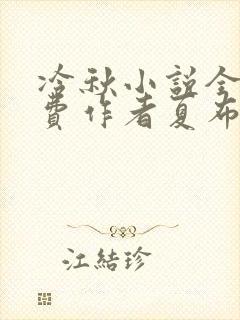 冷秋小説全
費作者夏布
江結珍